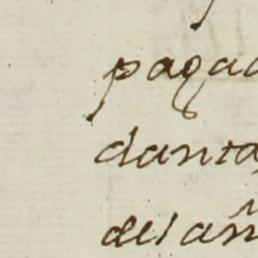 paga
danta
del añ